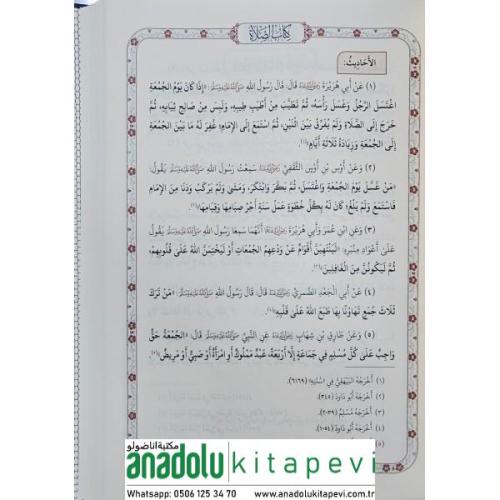 كتاب الصلاة
الأَحَادِيثُ:
(١) عَنْ أَبِي هُرَيْرَةَ رَضِيَ اللَّهُ عَنْهُ قَالَ: قَالَ رَسُولُ اللهِ صَلَّى اللَّهُ عَلَيْهِ وَسَلَّمَ: «إِذَا كَانَ يَوْمُ الجُمُعَةِ
اغْتَسَلَ الرَّجُلُ وَغَسَلَ رَأْسَهُ، ثُمَّ تَطَيَّبَ مِنْ أَطْيَبِ طِيبِهِ، وَلَبِسَ مِنْ صَالِحِ ثِيَابِهِ، ثُمَّ
خَرَجَ إِلَى الصَّلَاةِ وَلَمْ يُفَرِّقْ بَيْنَ اثْنَيْنِ، ثُمَّ اسْتَمَعَ إِلَى الإِمَامِ؛ غُفِرَ لَهُ مَا بَيْنَ الجُمُعَةِ
إِلَى الجُمُعَةِ وَزِيَادَةُ ثَلَاثَةِ أَيَّامٍ»(١).
(٢) عَنْ أَوْسِ بْنِ أَوْسٍ الثَّقَفِيِّ رَضِيَ اللَّهُ عَنْهُ سَمِعْتُ رَسُولَ اللهِ صَلَّى اللَّهُ عَلَيْهِ وَسَلَّمَ يَقُولُ:
«مَنْ غَسَّلَ يَوْمَ الجُمُعَةِ وَاغْتَسَلَ، ثُمَّ بَكَّرَ وَابْتَكَرَ، وَمَشَى وَلَمْ يَرْكَبْ وَدَنَا مِنَ الإِمَامِ
فَاسْتَمَعَ وَلَمْ يَلْغُ؛ كَانَ لَهُ بِكُلِّ خُطْوَةٍ عَمَلُ سَنَةٍ أَجْرُ صِيَامِهَا وَقِيَامِهَا»(٢).
(٣) وَعَنِ ابْنِ عُمَرَ وَأَبِي هُرَيْرَةَ رَضِيَ اللَّهُ عَنْهُمْ أَنَّهُمَا سَمِعَا رَسُولَ اللهِ صَلَّى اللَّهُ عَلَيْهِ وَسَلَّمَ يَقُولُ
عَلَى أَعْوَادِ مِنْبَرِهِ: «لَيَنْتَهِيَنَّ أَقْوَامٌ عَنْ وَدْعِهِمُ الجُمُعَاتِ أَوْ لَيَخْتِمَنَّ اللهُ عَلَى قُلُوبِهِمْ،
ثُمَّ لَيَكُونُنَّ مِنَ الغَافِلِينَ»(٣).
(٤) عَنْ أَبِي الجَعْدِ الضَّمْرِيِّ رَضِيَ اللَّهُ عَنْهُ قَالَ: قَالَ رَسُولُ اللهِ صَلَّى اللَّهُ عَلَيْهِ وَسَلَّمَ: «مَنْ تَرَكَ
ثَلَاثَ جُمَعٍ تَهَاوُنًا بِهَا طَبَعَ اللهُ عَلَى قَلْبِهِ»(٤).
(٥) وَعَنْ طَارِقِ بْنِ شِهَابٍ رَضِيَ اللَّهُ عَنْهُ عَنِ النَّبِيِّ صَلَّى اللَّهُ عَلَيْهِ وَسَلَّمَ قَالَ: «الجُمُعَةُ حَقٌّ
وَاجِبٌ عَلَى كُلِّ مُسْلِمٍ فِي جَمَاعَةٍ إِلَّا أَرْبَعَةً: عَبْدٌ مَمْلُوكٌ أَوِ امْرَأَةٌ أَوْ صَبِيٌّ أَوْ مَرِيضٌ»(٥).
(١) أَخْرَجَهُ البَيْهَقِيُّ فِي «سُنَنِهِ» (٦١٦٩).
(٢) أَخْرَجَهُ أَبُو دَاوُدَ (٣٤٥).
(٣) أَخْرَجَهُ مُسْلِمٌ (٢٠٣٩).
(٤) أَخْرَجَهُ أَبُو دَاوُدَ (١٠٥٤).
مكتبة اناضولو
anadolu kitapevi
Whatsapp: 0506 125 34 70 www.anadolukitapevi.com